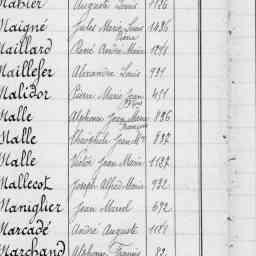 Mahier Auguste Louis 1126
Maigné Jules Marie Louis 1486
Maillard René André Marie
Maillefer Alexandre Louis 931
Malidor Pierre Marie Jean 451
Malle Alphonse Jean Marie 896
François
Malle Théophile Jean Mie 832
Malle Victor Jean Marie 1182
Mallecot Joseph Alfred Marie 922
Maniglier Jean Marcel 672
Marcadé André Auguste 1181
Marchand Alphonse Francis 82